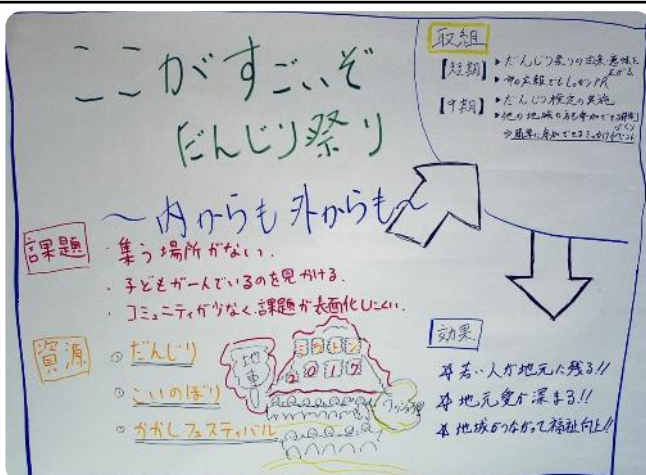 ここがすごいぞ
だんじり祭り
〜内からも外からも〜
課題
・集う場所がない。
・子どもが一人でいるのを見かける。
・コミュニティが少なく課題が表面化しにくい。
資源
◎だんじり
◎こいのぼり
◎かかしフェスティバル
地車
2017
取組
【短期】▶だんじり祭りの由来・意味を
広める
▶市の広報でもしっかりPR
【中期】▶だんじり検定の実施
▶他の地域の方も参加できる
簡単に参加できるミニだんじりイベント
効果
若い人が地元に残る!!
地元愛が深まる!!
地域がつながって福祉向上!!